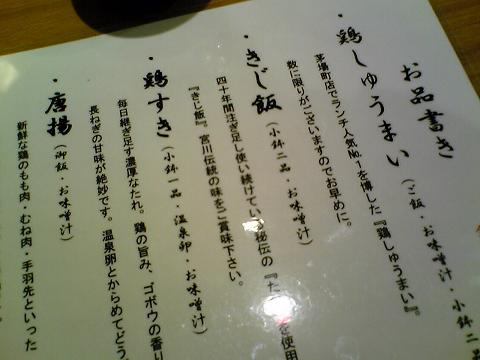 お品書き
・鶏しゅうまい(ご飯・お味噌汁・小鉢二品
茅場町店でランチ人気No.1を博した『鶏しゅうまい』。
数に限りがございますのでお早めに。
・きじ飯(小鉢二品・お味噌汁)
四十年間注ぎ足し使い続けている秘伝の『た を使用
『きじ飯』。宮川伝統の味をご賞味下さい。
・鶏すき(小鉢一品・温泉卵・お味噌汁)
毎日継ぎ足す濃厚なたれ。鶏の旨み、ゴボウの香り
長ねぎの甘味が絶妙です。温泉卵とからめてどう
・唐揚(御飯・お味噌汁)
新鮮な鶏のもも肉・むね肉・手羽先といった